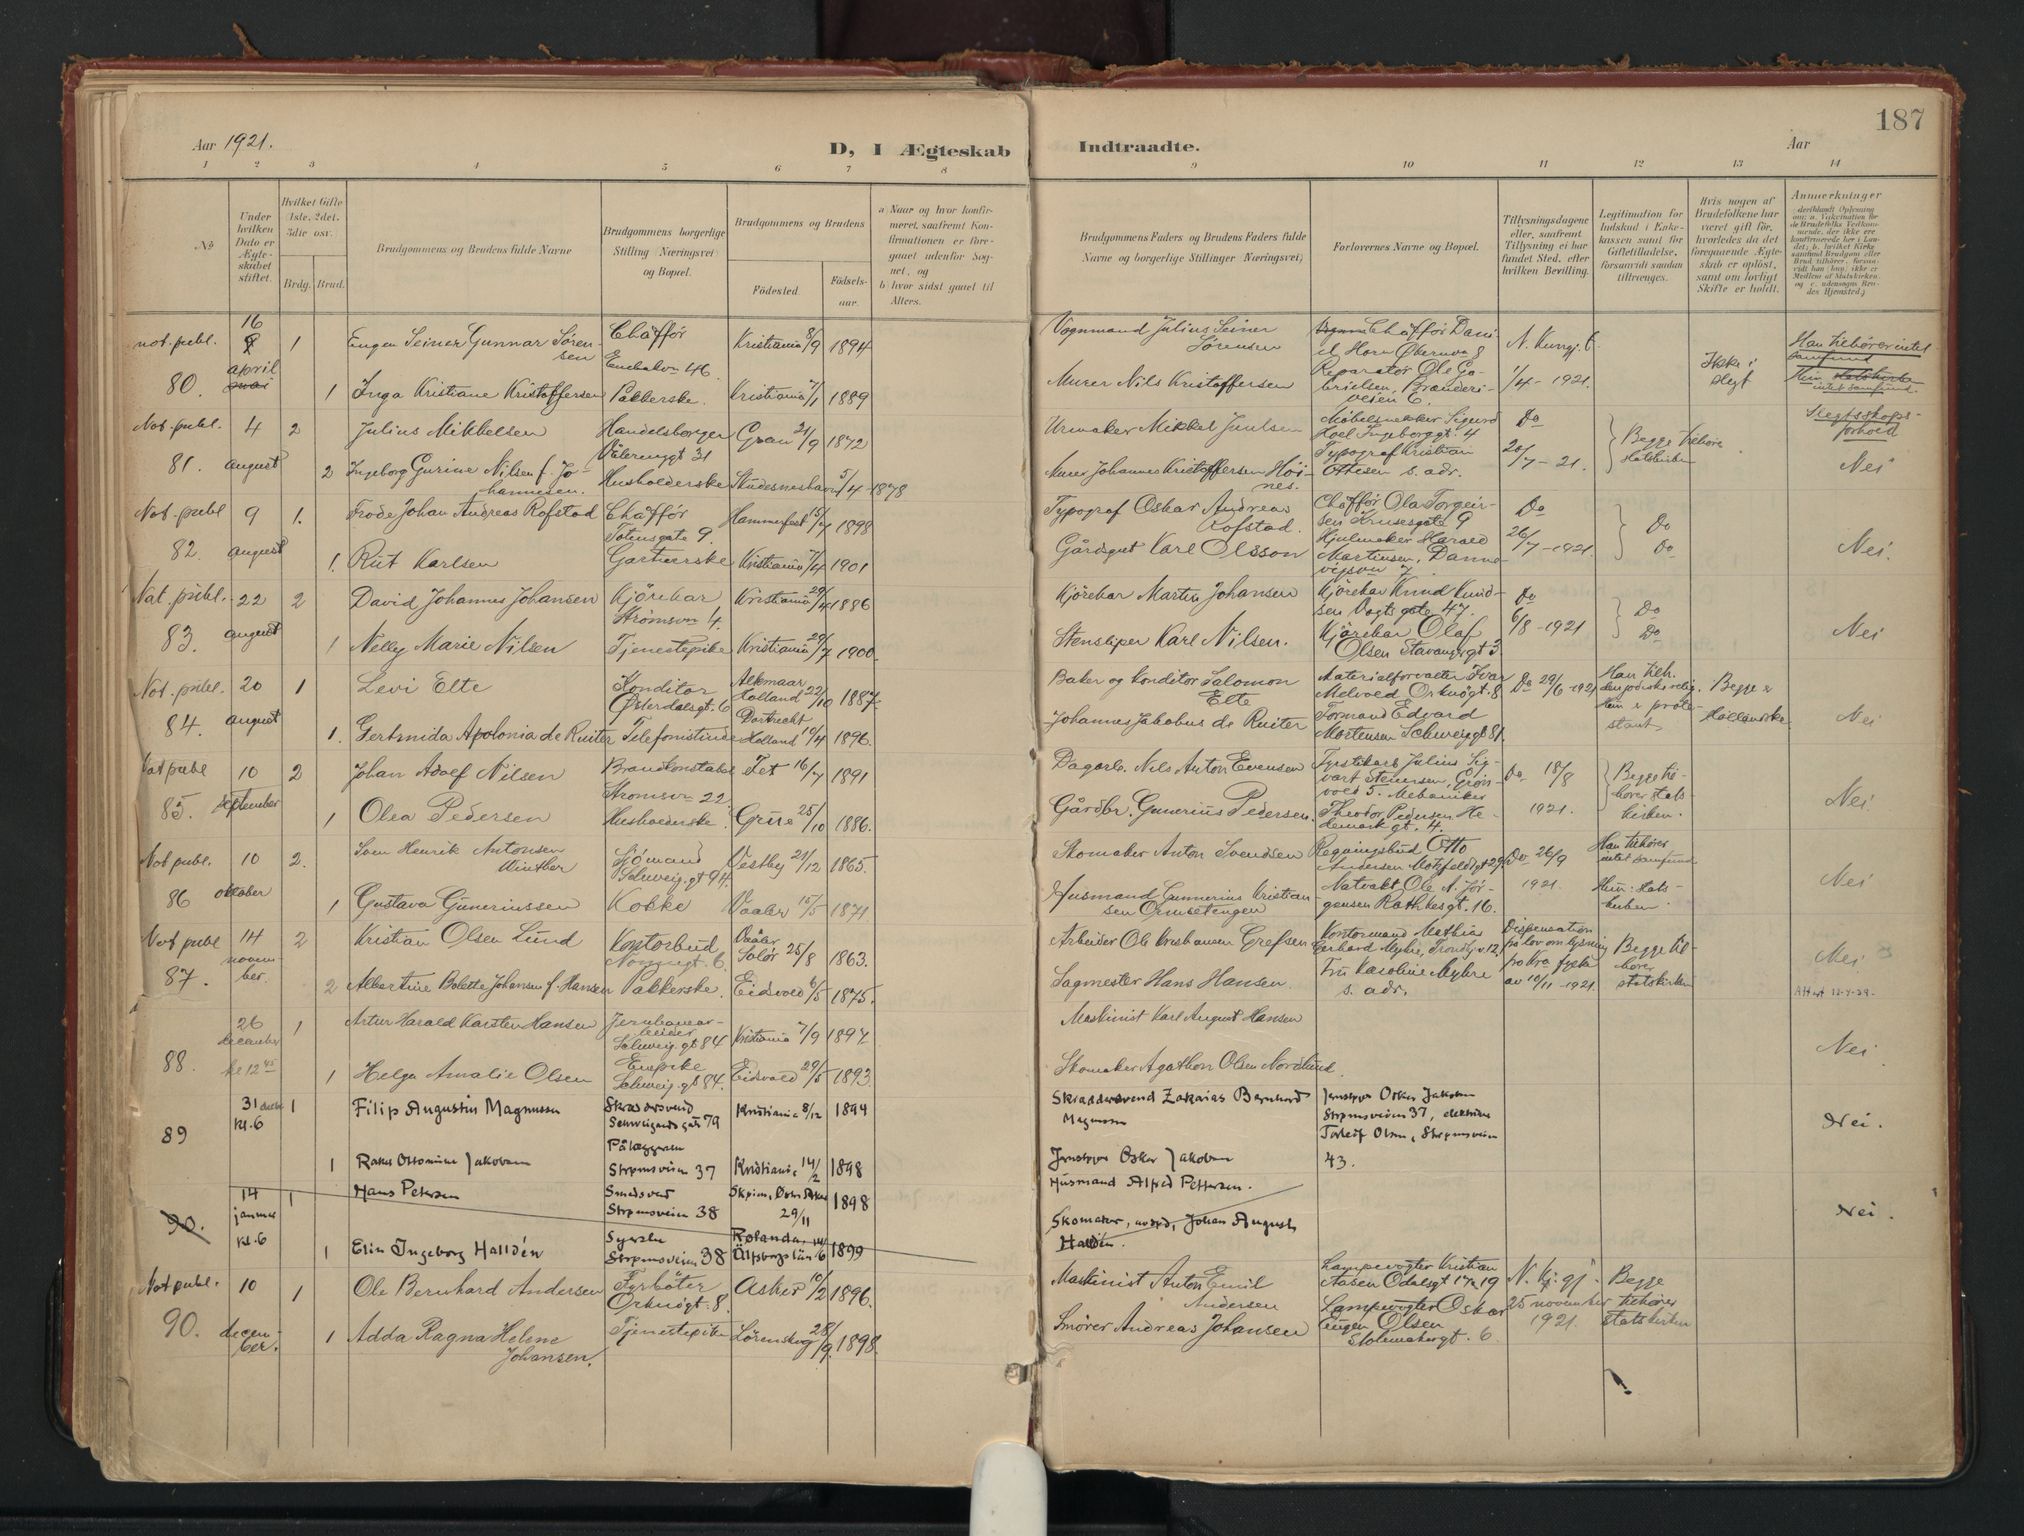 187
Aar 1921.
D, I Ægteskab Indtraadte.
Aar
1 2 3 4 5 6 7 8 9 10 11 12 13 14
No
Under hvilken Dato er Ægteskabet stiftet.
Hvilket Gifte 1ste, 2det, 3die osv.
Brdg. Brud.
Brudgommens og Brudens fulde Navne
Brudgommens borgerlige Stilling (Næringsvei) og Bopæl.
Brudgommens og Brudens
Fødested
Fødselsaar.
a) Naar og hvor konfirmeret, saafremt Konfirmationen er foregaaet udenfor Sognet, og
b) hvor sidst gaaet til Alters.
Brudgommens Faders og Brudens Faders fulde Navne og borgerlige Stillinger (Næringsvei)
Forlovernes Navne og Bopæl.
Tillysningsdagene eller, saafremt Tillysning ei har fundet Sted, efter hvilken Bevilling.
Legitimation for Indskud i Enkekassen samt for Giftetilladelse, forsaavidt saadan tiltrænges.
Hvis nogen af Brudefolkene har været gift før, hvorledes da det foregaaende Ægteskab er opløst, samt om lovligt Skifte er holdt.
Anmerkninger
Not. publ. 16 april 1 Eugen Seiner Gunnar Sørensen Chåffør Enebakvn 46. Kristiania 8/9 1894
Vognmand Julius Seiner Sørensen
Chåffør Daniel Horn Økernvn 8
N. Kungj. t.
Han tilhører intet samfund
80. 1 Inga Kristiane Kristoffersen Pakkerske. Kristiania 7/1 1889
Murer Nils Kristoffersen
Reparatør Ole Gabrielsen, Brænderiveien 6.
1/4 - 1921.
Ikke i slegt
Not. publ. 4 august 2 Julius Mikkelsen Handelsborger Vålerenggt 31 Gran 21/9 1872
Urmaker Mikkel Juulsen
Møbelsnekker Sigurd Hoel Ingeborggt. 4
Do
Begge tilhøre statskirken
Slegtskapsforhold
81. 2 Ingeborg Gurine Nilsen f. Johannesen. Husholderske Skudesneshavn 5/4 - 1878
Murer Johannes Kristoffersen Høines.
Typograf Kristian Ottesen s. adr.
20/7 - 21.
Nei
Not. publ 9 august 1. Frode Johan Andreas Rofstad Chåffør Totensgate 9. Hammerfest 15/7 1898
Typograf Oskar Andreas Rofstad.
Chåffør Ola Torgeirsen Krusesgate 9
Do
Do
82. 1. Rut Karlsen Gartnerske Kristiania 7/4 1901
Gårdsgut Karl Olsson
Hjulmaker Harald Martinsen, Dannevigsvn 7.
26/7 - 1921.
Do
Nei.
Not. publ. 22 august 2 David Johannes Johansen Kjørekar Strømsvn 4. Kristiania 29/4 1886
Kjørekar Martin Johansen
Kjørekar Knud Knudsen Vogts gate 47.
Do
Do
83. 1 Nelly Marie Nilsen Tjenestepike Kristiania 29/7 1900.
Stensliper Karl Nilsen.
Kjørekar Olaf Olsen Stavangergt 3.
6/8 - 1921
Do
Nei
Not. publ. 20 august 1 Levi Elte Konditor Østerdalsgt. 6 Alkmaar Holland 22/10 1887.
Baker og konditor Salomon Elte
Materialforvalter Ivar Melvold Orknøgt. 8
Do 29/6 - 1921
Han tilh. den jødiske relig. Hun er protestant
Begge er Hollandske.
84. 1. Gertruida Apolonia de Ruiter Telefonistinde Dortrecht Holland 10/4 1896.
Johannes Jakobus de Ruiter
Formand Edvard Mortensen Schweiggt 81.
Nei
Not publ 10 september 2 Johan Adolf Nilsen Brandkonstabel Strømsvn 22. Fet 16/7 1891
Dagarb. Nils Anton Evensen
Julius Sigvart Stensen, Grønvold 5.
Do 18/8 1921.
Begge tilhører statskirken.
85. 1 Olea Pedersen Husholderske. Grue 25/10 1886.
Gårdbr. Gunerius Pedersen.
Mekaniker Theodor Pedersen Hedemarkgt. 4.
Nei.
Not publ. 10 oktober 2. Sven Henrik Antonsen Winther Sjømand Schweig. gt 94. Vestby 21/12 1865.
Skomaker Anton Svendsen
Regningsbud Otto Andersen Motzfeldtgt 29.
Do 26/9 1921.
Han tilhører intet samfund
86 1 Gustava Guneriussen Kokke Vaaler 15/5 1871
Husmand Gunnerius Kristiansen Ormsetengen
Natvakt Ole A. Jørgensen Rathkesgt. 16.
Hun: statskirken.
Nei
Not publ 14 november. 2 Kristian Olsen Lund Kontorbud Norbygt. 6 Vaaler Solør 25/8 1863.
Arbeider Ole Kristiansen Grefsen
Kontormand Mathias Gerhard Myhre, Trondhj.v. 12.
Dispensation på lov om lysning fra av 10/11 - 1921.
Begge tilhører statskirken
87. 2 Albertine Bolette Johansen f. Hansen Pakkerske. Eidsvold 6/5 1875.
Sagmester Hans Hansen.
Fru Karoline Myhre s. adr.
Nei
Att. 12-4-39.
26 december kl 12 45 1 Artur Harald Karsten Hansen Jernbanearbeider Schweig. gt 84 Kristiania 7/9 1897
Maskinist Karl August Hansen
88. 1 Helga Amalie Olsen Enepike Schweig. gt 84. Eidsvold 29/5 1893.
Skomaker Agathon Olsen Nordlund.
Nei.
31 decbr kl. 6 1 Filip Augustin Magnussen Skræddersvend Schweigaards gate 79 Kristiania 8/12 1894
Skræddersvend Zakarias Bernhard Magnussen
Oskar Jakobsen Strømsveien 37, elektriker Torleif Olsen, Strømsveien 43.
89 1 Rakel Ottomine Jakobsen Strømsveien 37 Kristiania 14/2 1898
Oskar Jakobsen
Nei.
14 januar kl. 6 1 Hans Petersen Smedsvend Strømsveien 38 29/11 1898
Husmand Alfred Pettersen.
90. 1 Elin Ingeborg Halldén Syerske Strømsveien 38 Rølanda, Älfsborgs län 14/6 1899
Skomaker, Johan August Halldén.
Nei.
Not publ. 10 december. 1 Ole Bernhard Andersen Fyrbøter Orknøgt. 8. Asker 10/2 1896.
Maskinist Anton Emil Andersen
Lampevogter Kristian Aasen Odalsgt 19
N. Kj. gj. 25 november 1921.
Begge tilhører statskirken
90. 1 Adda Ragna Helene Johansen. Tjenestepike Lørenskog 28/9. 1898.
Smører Andreas Johansen
Lampevogter Oskar Eugen Olsen Stolmakergt. 6.